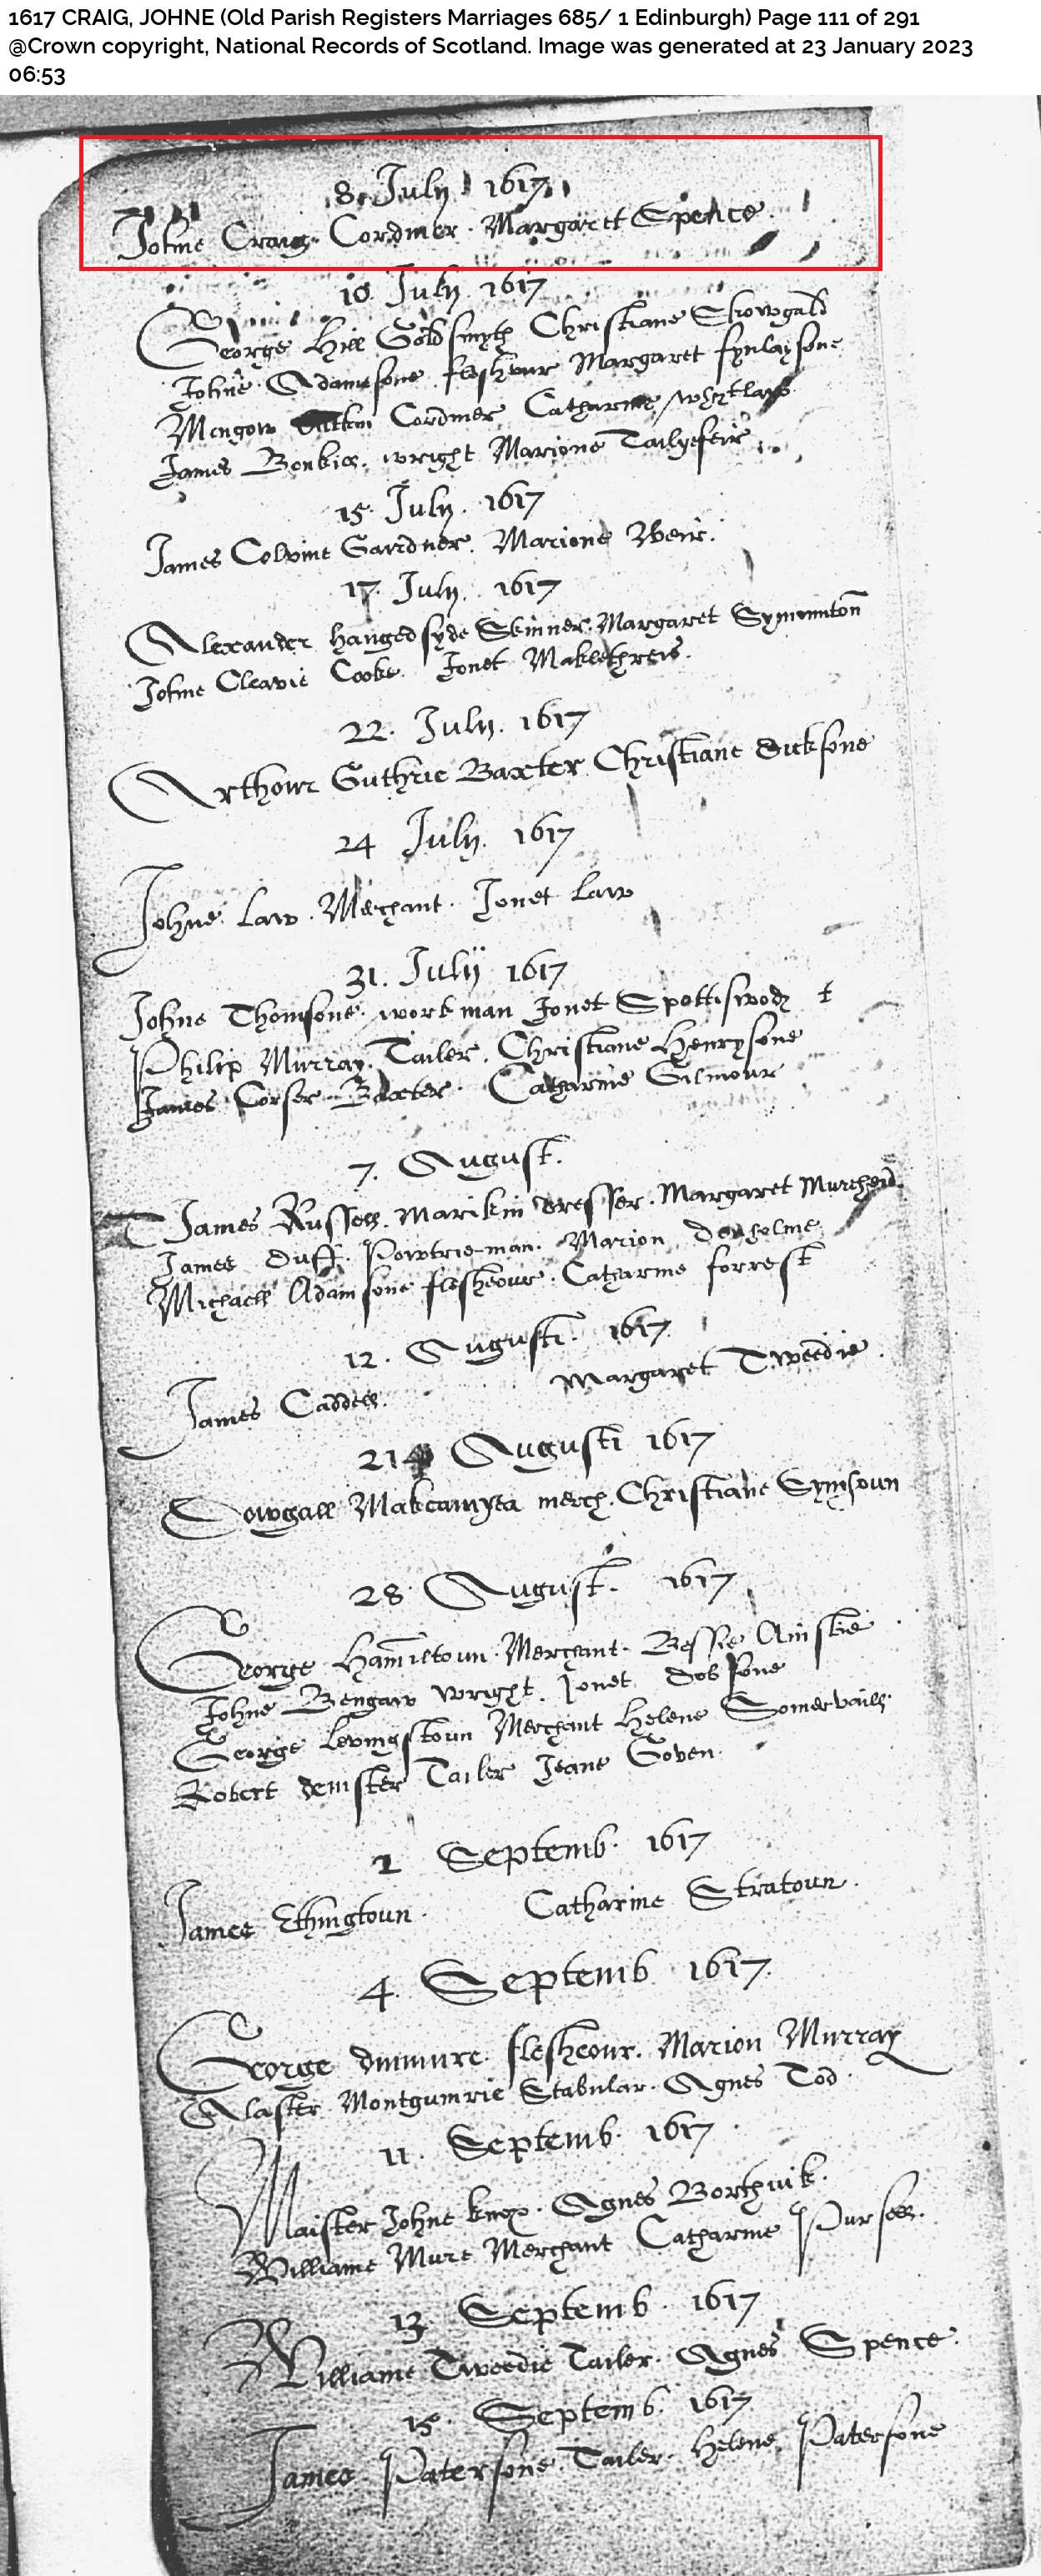 1617 CRAIG, JOHNE (Old Parish Registers Marriages 685/ 1 Edinburgh) Page 111 of 291
@Crown copyright, National Records of Scotland. Image was generated at 23 January 2023
06:53
8. July 1617
Johne Craig. Cordiner. Margaret Spence.
10 July 1617
George Hill Goldsmyth Christiane
Johne Adamesone fleshour Margaret fynlaysone
Mongow Cordiner Catharine
James wright Marione Tailyefeir
15. July. 1617
James Colvine Gairdner. Marione Weir.
17. July. 1617
Alexander hangedsyde Skinner. Margaret Symonton
Johne Cleavie Cooke. Jonet
22. July. 1617
Arthour Guthrie Baxter Christiane Dicksone
24 July. 1617
Johne Law. Merchant. Jonet Law
31. July 1617
Johne Thomsone workman Jonet Spottiswod
Philip Murray. Tailer. Christiane Henrysone
James Corser Baxter. Catharine Gilmour
7. August.
James Russell. dresser. Margaret Murehead
James Duff. Powtrie-man. Marion
Michaell Adamsone fleshour. Catharine forrest
12. Augusti. 1617
James Caddell. Margaret Tweedie.
21 Augusti 1617
Dowgall merch. Christiane Symsoun
28. August. 1617
George Hamiltoun. Merchant. Bessie Ainslie
Johne Bengaw wright. Jonet Dobsone
George Levingstoun Merchant Helene Somervaill.
Robert Demster Tailer Jeane Goven.
2 Septemb. 1617
James Ethingtoun. Catharine Stratoun.
4. Septemb 1617.
George fleshour. Marion Murray
Alaster Montgumrie Stabular. Agnes Tod.
11. Septemb. 1617.
Maister Johne knox. Agnes Borthuik.
Williame Mure Merchant Catharine Pursell.
13. Septemb. 1617
Williame Tweedie Tailer. Agnes Spence.
15. Septemb. 1617
James Patersone. Tailer. Helene Patersone